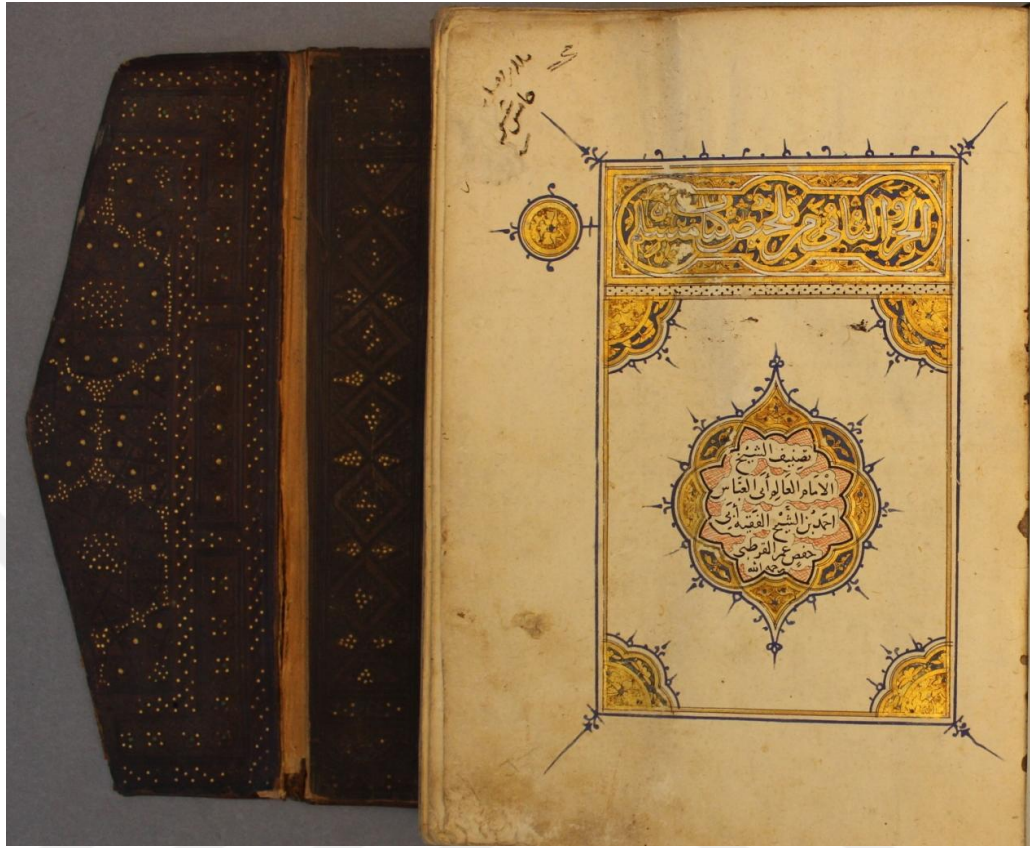 الجزو الثاني من تلخيص كتاب مسلم
تصنيف الشيخ
الامام العالم أبي العباس
احمد بن الشيخ الفقيه أبي
حفص عمر القرطبي
رحمه الله